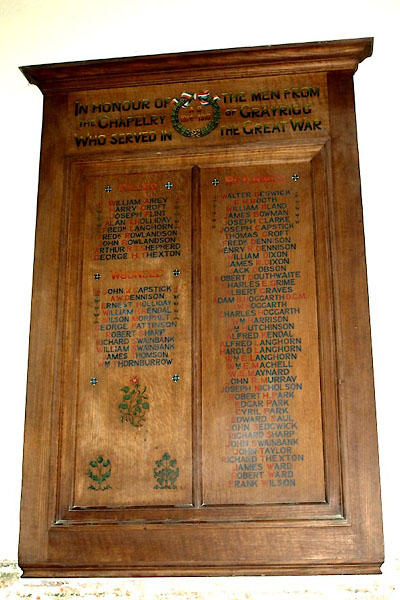 IN HONOUR OF THE MEN FROM
THE CHAPELRY OF GRAYRIGG
WHO SERVED IN THE GREAT WAR
KILLED
WILLIAM AIREY
HARRY CROFT
JOSEPH FLINT
ALAN HOLLIDAY
FREDK LANGHORN
FREDK ROWLANDSON
JOHN ROWLANDSON
ARTHUR SHEPHERD
GEORGE H. THEXTON
WOUNDED
JOHN J. CAPSTICK
A.W. DENNISON
ERNEST HOLLIDAY
WILLIAM KENDAL
WILSON MORPHET
GEORGE PATTINSON
ROBERT SHARP
RICHARD SWAINBANK
WILLIAM SWAINBANK
JAMES THOMSON
WM THORNBURROW
WALTER BESWICK
BOOTH
WILLIAM BLAND
JAMES BOWMAN
JOSEPH CLARKE
JOSEPH CAPSTICK
THOMAS CROFT
FREDK DENNISON
HENRY N. DENNISON
WILLIAM DIXON
JAMES R. DIXON
JACK DOBSON
ROBERT DOUTHWAITE
CHARLES E. GRIME
ALBERT GRAVES
ADAM B. HOGGARTH D.C.M.
HOGGARTH
CHARLES HOGGARTH
WM HARRISON
WM HUTCHINSON
ALFRED KENDAL
ALFRED LANGHORN
HAROLD LANGHORN
WM E. LANGHORN
WM E. MACHELL
W. S. MAYNARD
JOHN R. MURRAY
JOSEPH NICHOLSON
ROBERT H. PARK
EDGAR PARK
CYRIL PARK
EDWARD SAUL
JOHN SEDGWICK
RICHARD SHARP
JOHN SWAINBANK
JOHN TAYLOR
RICHARD THEXTON
JAMES WARD
ROBERT WARD
FRANK WILSON